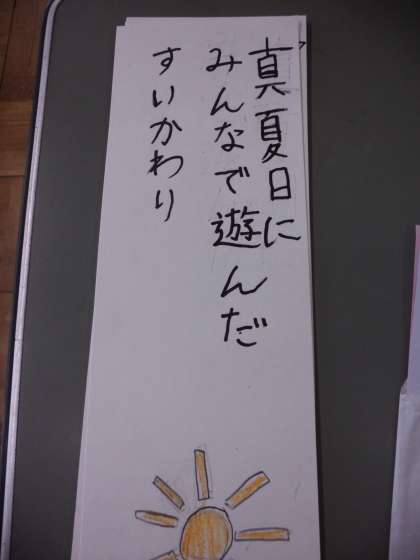 真夏日に
みんなで遊んだ
すいかわり